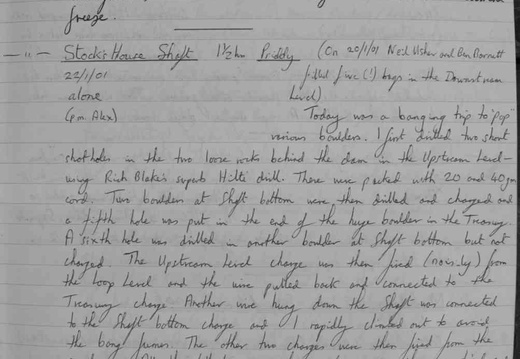 freeze.
— " — Stock's House Shaft 1½ hrs Priddy (On 20/1/01 Neil Usher and Ben Barnett
22/1/01 filled five (!) bags in the Downstream
alone Level)
(p.m. Alex) Today was a banging trip to "pop"
various boulders. I first drilled two short
shotholes in the two loose rocks behind the dam in the Upstream Level -
using Rich Blake's superb Hilti drill. These were packed with 20 and 40gm
cord. Two boulders at Shaft bottom were then drilled and charged and
a fifth hole was put in the end of the huge boulder in the Treasury.
A sixth hole was drilled in another boulder at Shaft bottom but not
charged. The Upstream Level charge was then fired (noisily) from
the Loop Level and the wire pulled back and connected to the
Treasury charge. Another wire hung down the Shaft was connected
to the Shaft bottom charge and I rapidly climbed out to avoid
the bang fumes. The other two charges were then fired from the